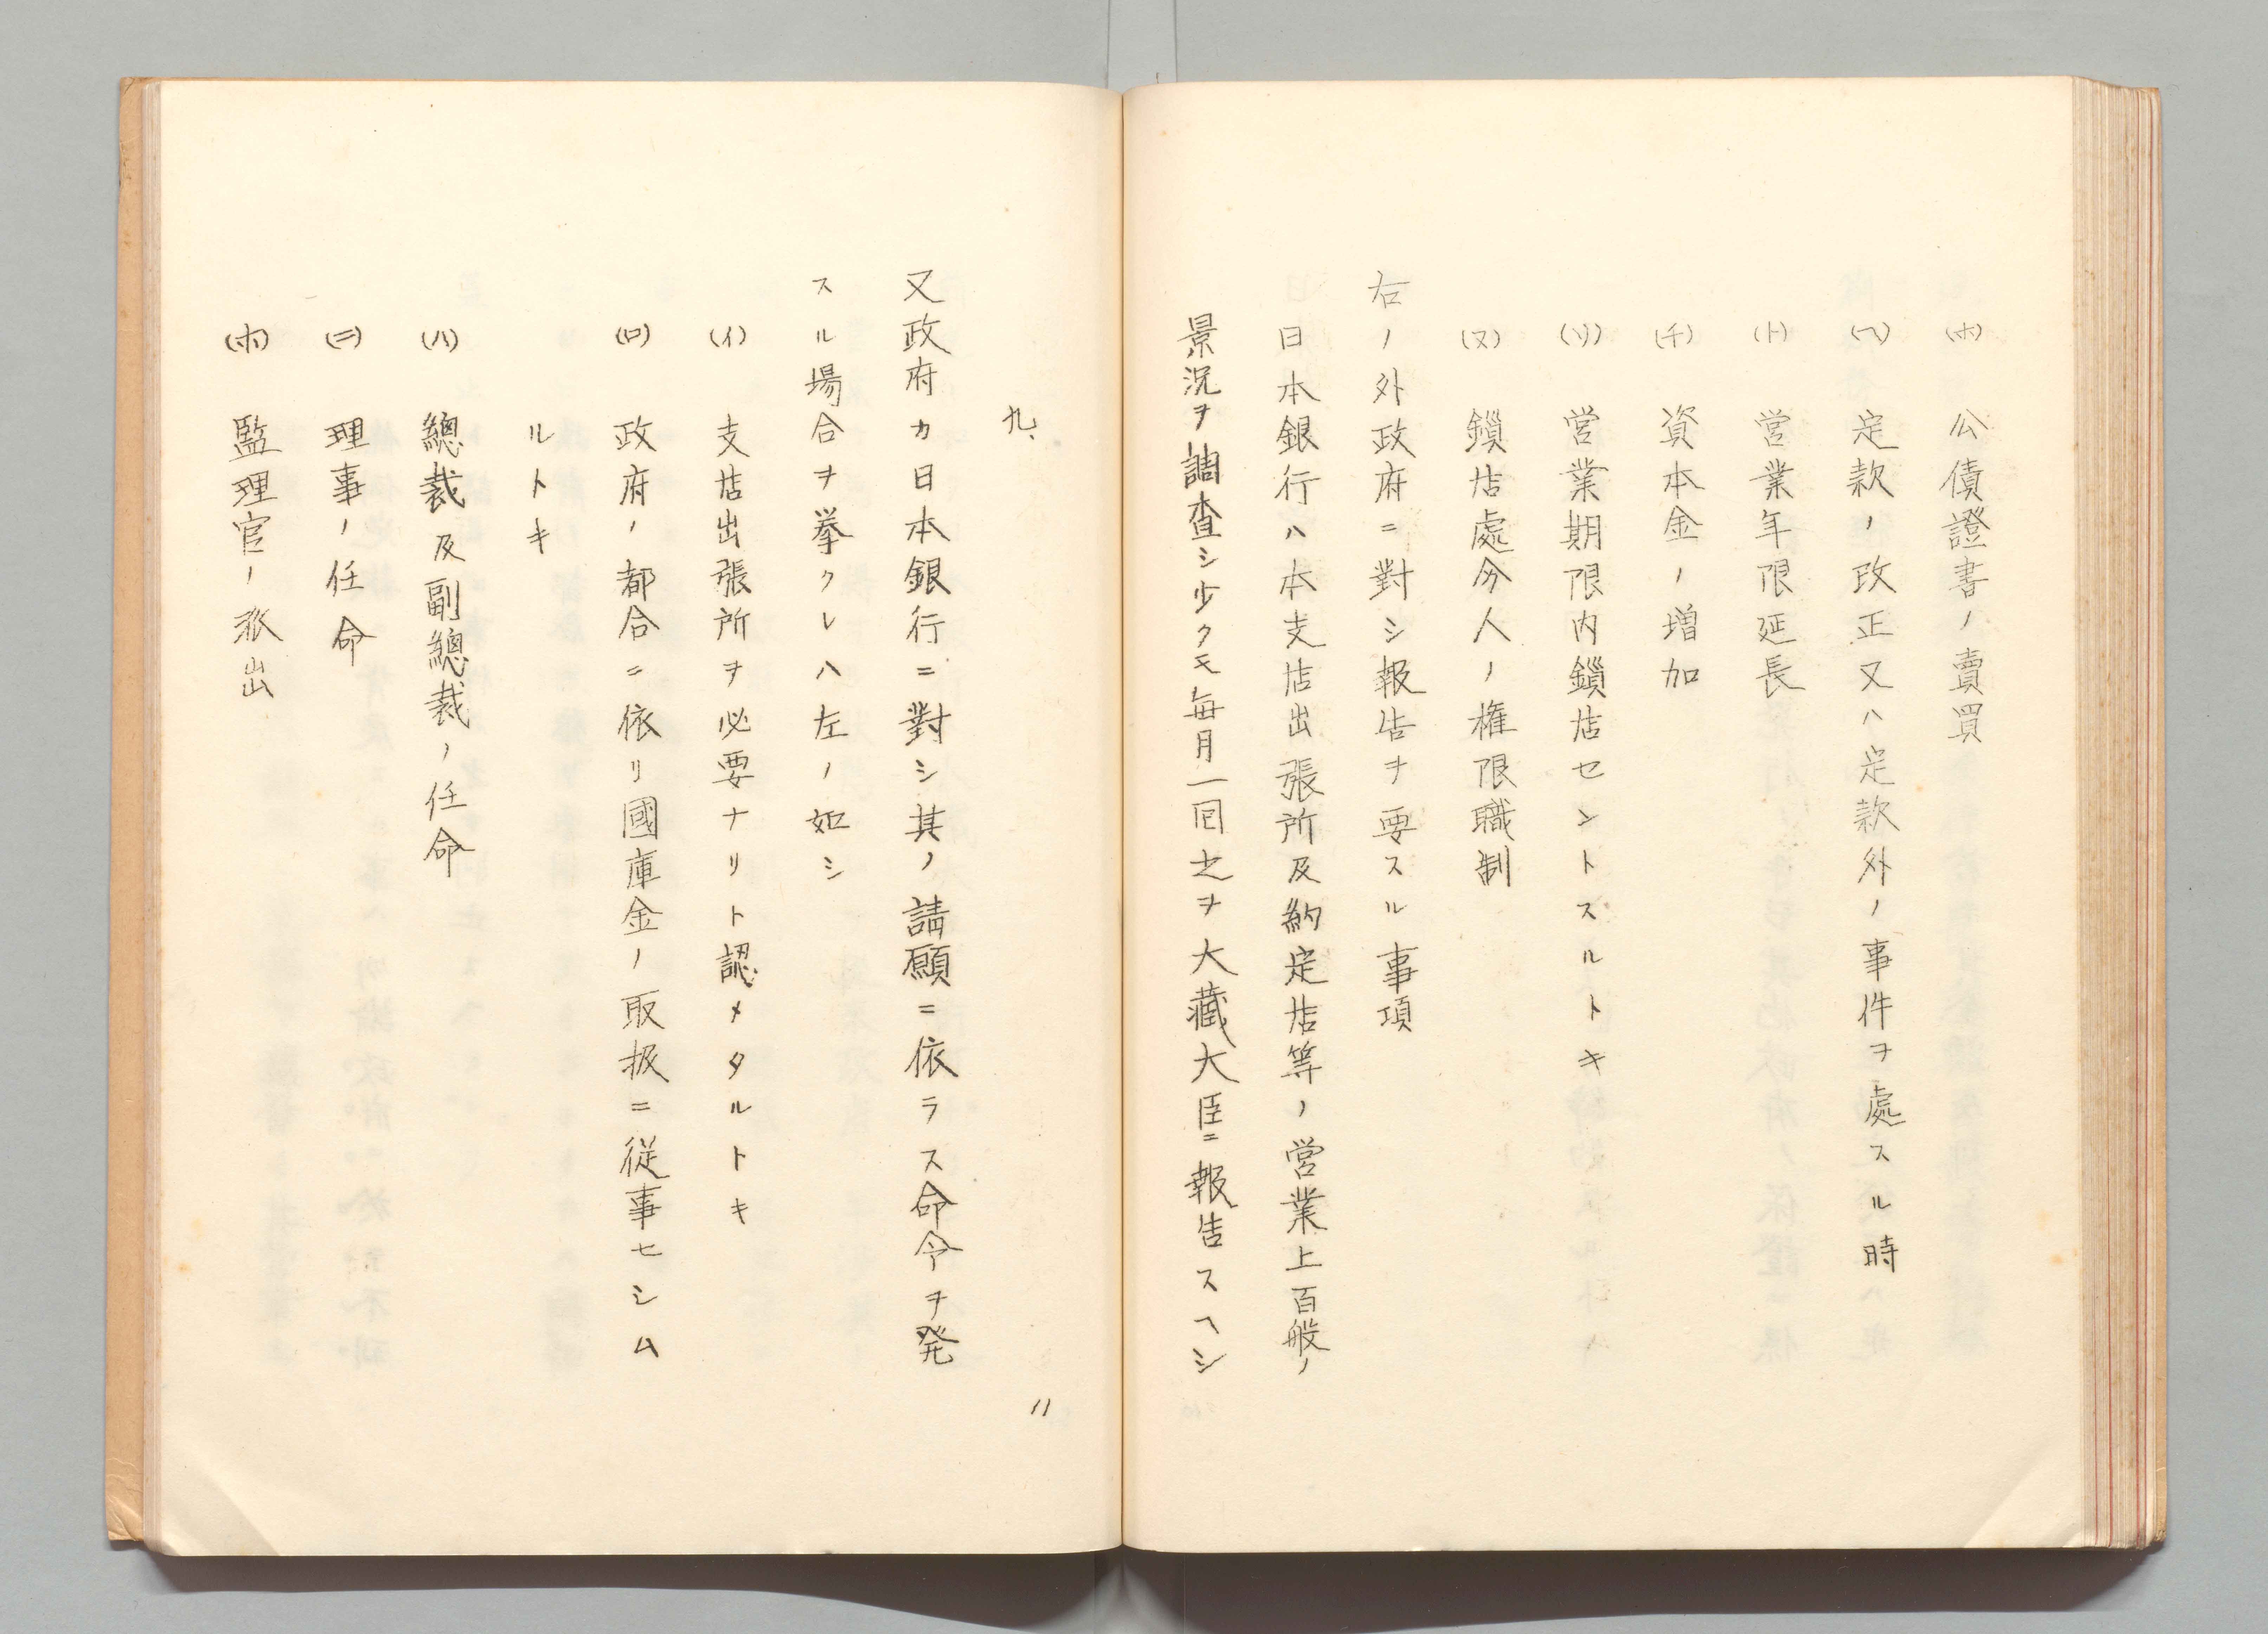 (ホ) 公債證書ノ賣買
(ヘ) 定款ノ改正又ハ定款外ノ事件ヲ處スル時
(ト) 営業年限延長
(チ) 資本金ノ増加
(リ) 営業期限内鎖店セントスルトキ
(ヌ) 鎖店處分人ノ権限職制
右ノ外政府ニ對シ報告ヲ要スル事項
日本銀行ハ本支店出張所及約定店等ノ営業上百般ノ
景況ヲ調査シ少クモ毎月一回之ヲ大藏大臣ニ報告スヘシ
九、
又政府カ日本銀行ニ對シ其ノ請願ニ依ラス命令ヲ発
スル場合ヲ挙クレハ左ノ如シ
(イ) 支店出張所ヲ必要ナリト認メタルトキ
(ロ) 政府ノ都合ニ依リ國庫金ノ取扱ニ従事セシム
ルトキ
(ハ) 總裁及副總裁ノ任命
(ニ) 理事ノ任命
(ホ) 監理官ノ派出
11